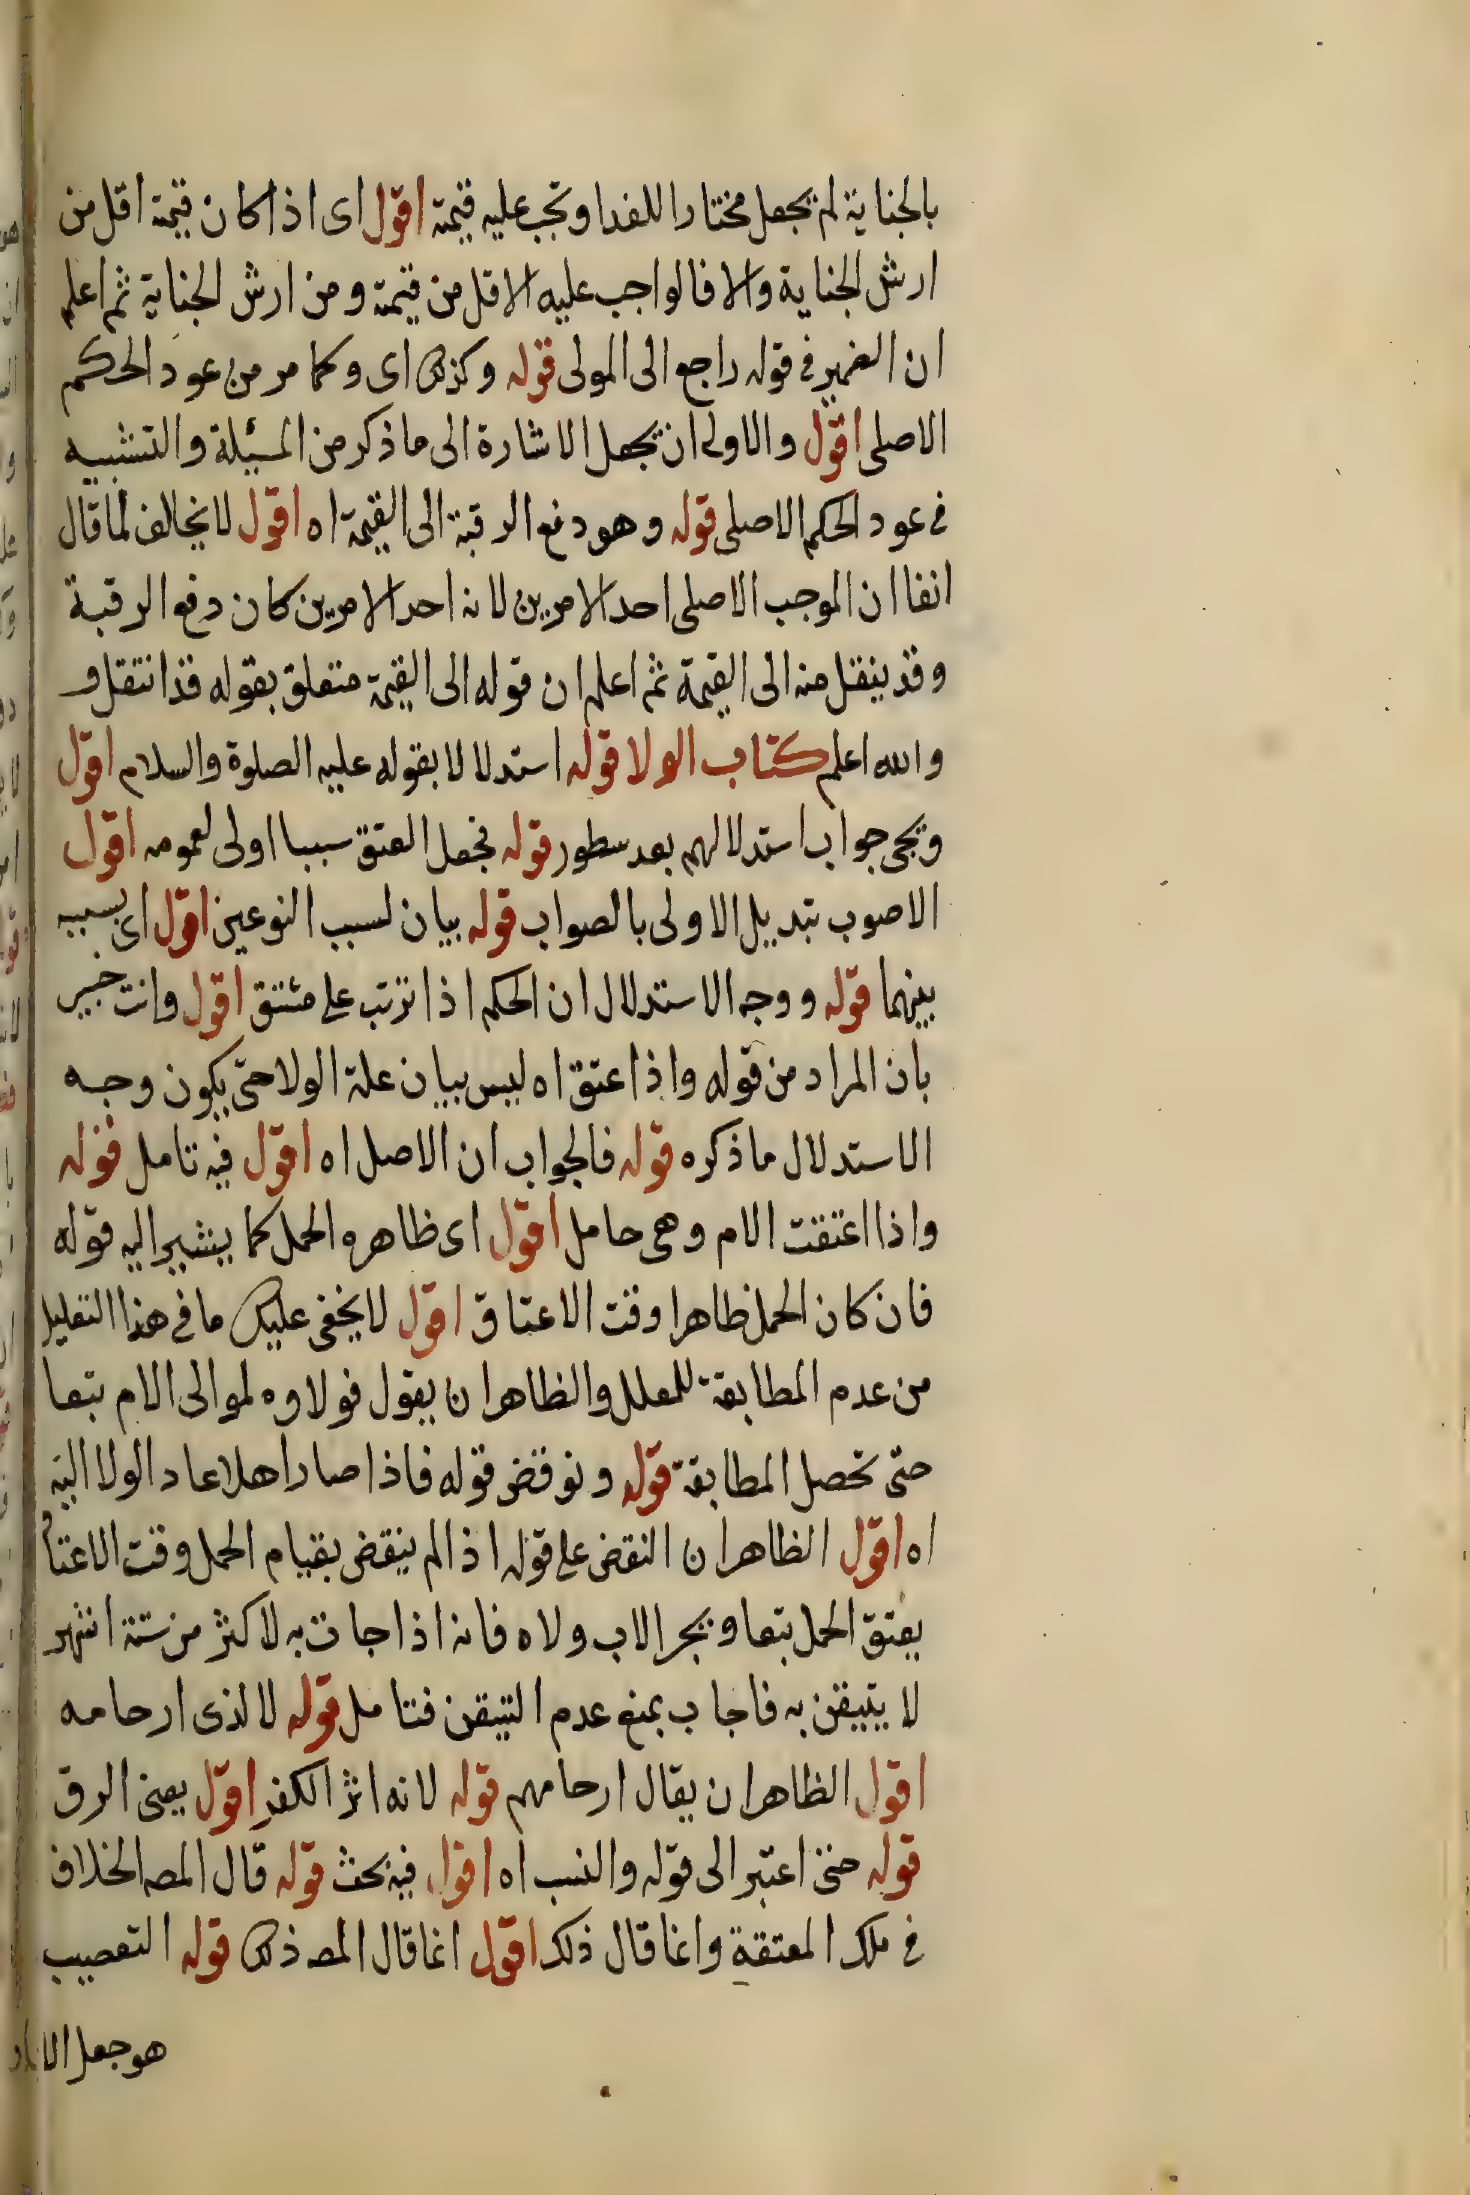 بالجناية لم يجعل مختارا للفدا وتجب عليه قيمته اقول اى اذا كان قيمته اقل من
ارش الجناية والا فالواجب عليه الاقل من قيمته ومن ارش الجناية ثم اعلم
ان الضمير في قوله راجع الى المولى قوله وكذلك اى وكما مر من عود الحكم
الاصلى اقول والاولى ان يجعل الاشارة الى ما ذكر من المسئلة والتشبيه
في عود الحكم الاصلى قوله وهو دفع الرقبة الى القيمة اه اقول لا يخالف لما قال
انفا ان الموجب الاصلى احد الامرين لانه احد الامرين كان دفع الرقبة
وقد ينقل منه الى القيمة ثم اعلم ان قوله الى القيمة متعلق بقوله قد انتقل و
والله اعلم كتاب الولا قوله استدلالا بقوله عليه الصلوة والسلام اقول
ويجى جواب استدلالهم بعد سطور قوله فجعل العتق سببا اولى لعمومه اقول
الاصوب تبديل الاولى بالصواب قوله بيان لسبب النوعين اقول اى بسببه
بينهما قوله ووجه الاستدلال ان الحكم اذا ترتب على مشتق اقول وانت خبير
بان المراد من قوله واذا عتق اه ليس بيان علة الولا حتى يكون وجه
الاستدلال ما ذكره قوله فالجواب ان الاصل اه اقول فيه تامل قوله
واذا اعتقت الام وهى حامل اقول اى ظاهره الحمل كما يشير اليه قوله
فان كان الحمل ظاهرا وقت الاعتاق اقول لا يخفى عليك ما في هذا التعليل
من عدم المطابقة للمعلل والظاهر ان يقول فولاوه لموالى الام تبعا
حتى تحصل المطابقة قوله ونوقض قوله فاذا صار اهلا عاد الولا اليه
اه اقول الظاهر ان النقض على قوله اذ الم ينقض بقيام الحمل وقت الاعتا
يعتق الحمل تبعا ويجر الاب ولاه فانه اذا جات به لاكثر من ستة اشهر
لا يتيقن به فاجاب بمنع عدم التيقن فتامل قوله لا لذى ارحامه
اقول الظاهر ان يقال ارحامهم قوله لانه اثر الكفر اقول يعنى الرق
قوله حتى اعتبر الى قوله والنسب اه اقول فيه بحث قوله قال المص الخلاف
في ملك المعتقة وانما قال ذلك اقول انما قال المص ذلك قوله التعصيب
هو جعل